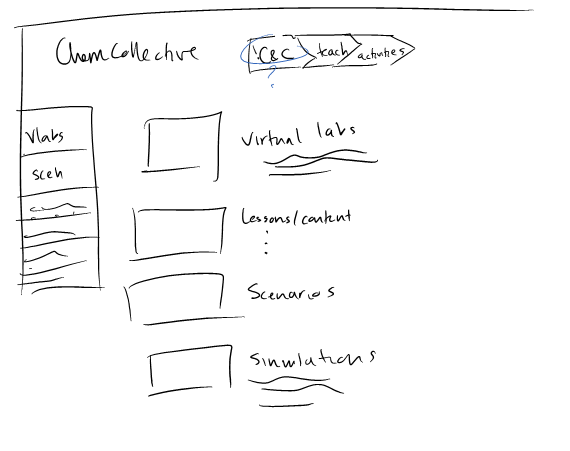 ChemCollective
C&C teach activities
?
Vlabs
Scen
Virtual labs
Lessons/content
Scenarios
Simulations